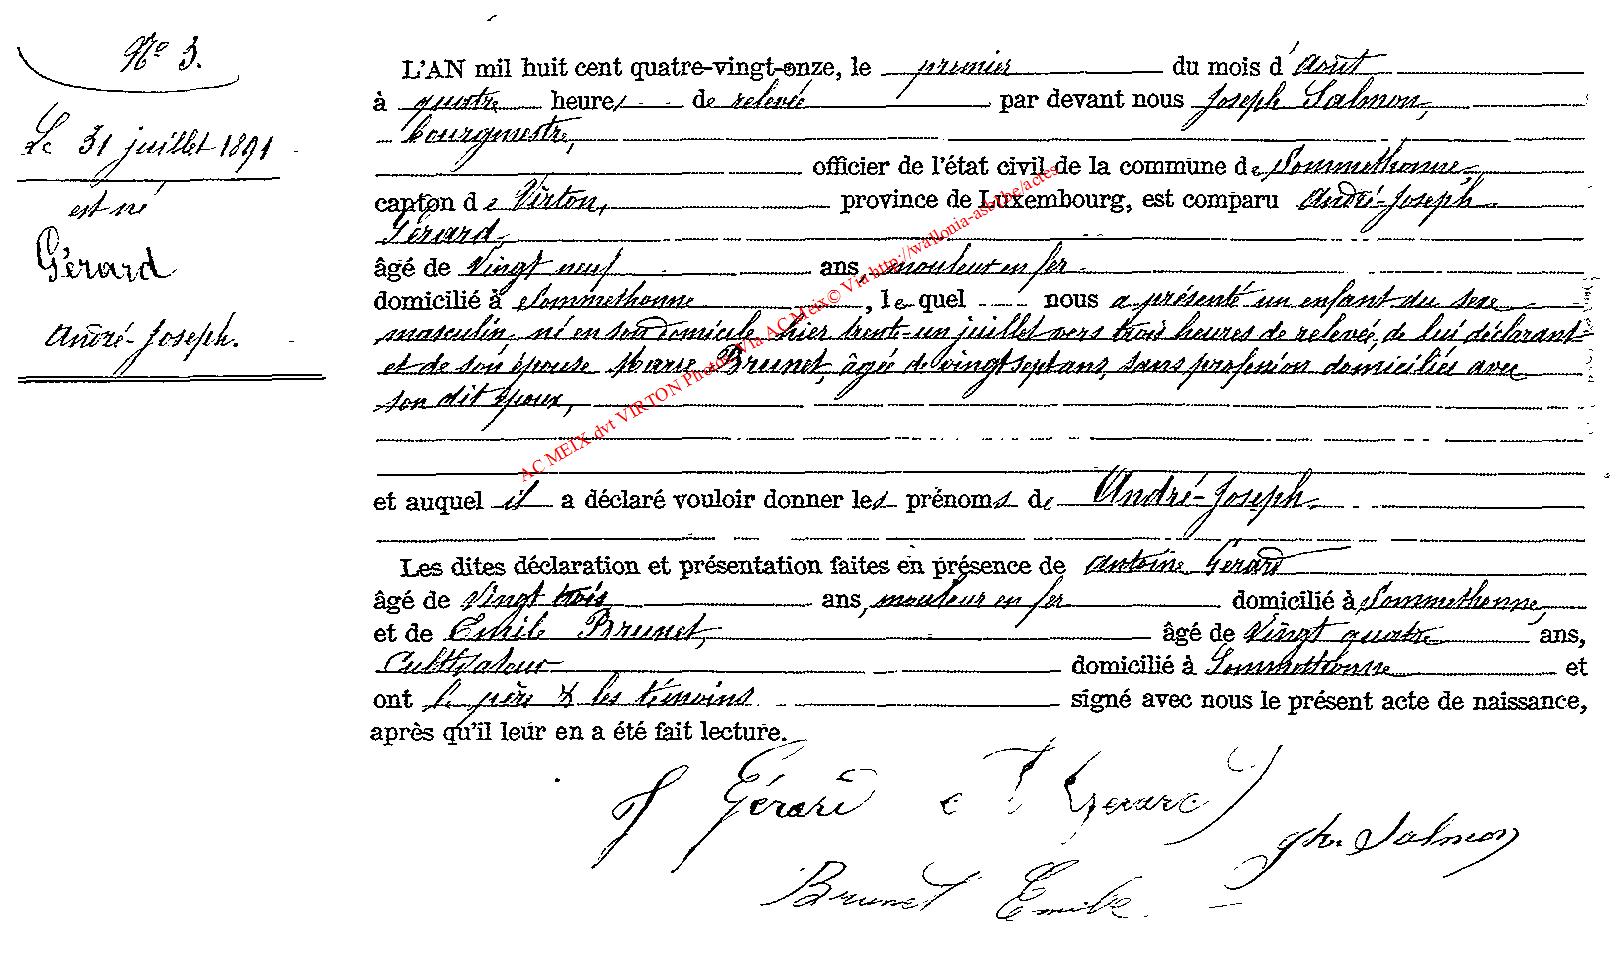 N° 3.
Le 31 juillet 1891
est né
Gérard
André-Joseph.
L'AN mil huit cent quatre-vingt-onze, le premier du mois d'Août
à quatre heures de relevée par devant nous Joseph Salmon,
bourgmestre,
officier de l'état civil de la commune de Sommethonne,
canton de Virton, province de Luxembourg, est comparu André-Joseph
Gérard,
âgé de Vingt neuf ans, mouleur en fer
domicilié à Sommethonne, lequel nous a présenté un enfant du sexe
masculin, né en son domicile, hier trente-un juillet vers trois heures de relevée, de lui déclarant
et de son épouse Marie Brunet, âgée de vingt sept ans, sans profession domiciliée avec
son dit époux,
et auquel il a déclaré vouloir donner les prénoms de André-Joseph.
Les dites déclaration et présentation faites en présence de Antoine Gérard
âgé de Vingt trois ans, mouleur en fer domicilié à Sommethonne,
et de Emile Brunet, âgé de Vingt quatre ans,
Cultivateur domicilié à Sommethonne et
ont le père & les témoins signé avec nous le présent acte de naissance,
après qu'il leur en a été fait lecture.
Gérard Gerard
Salmon
Brunet Emile
AC MEIX-dvt VIRTON Photos Via AC Meix© Via http://wallonia-asbl.be/actes